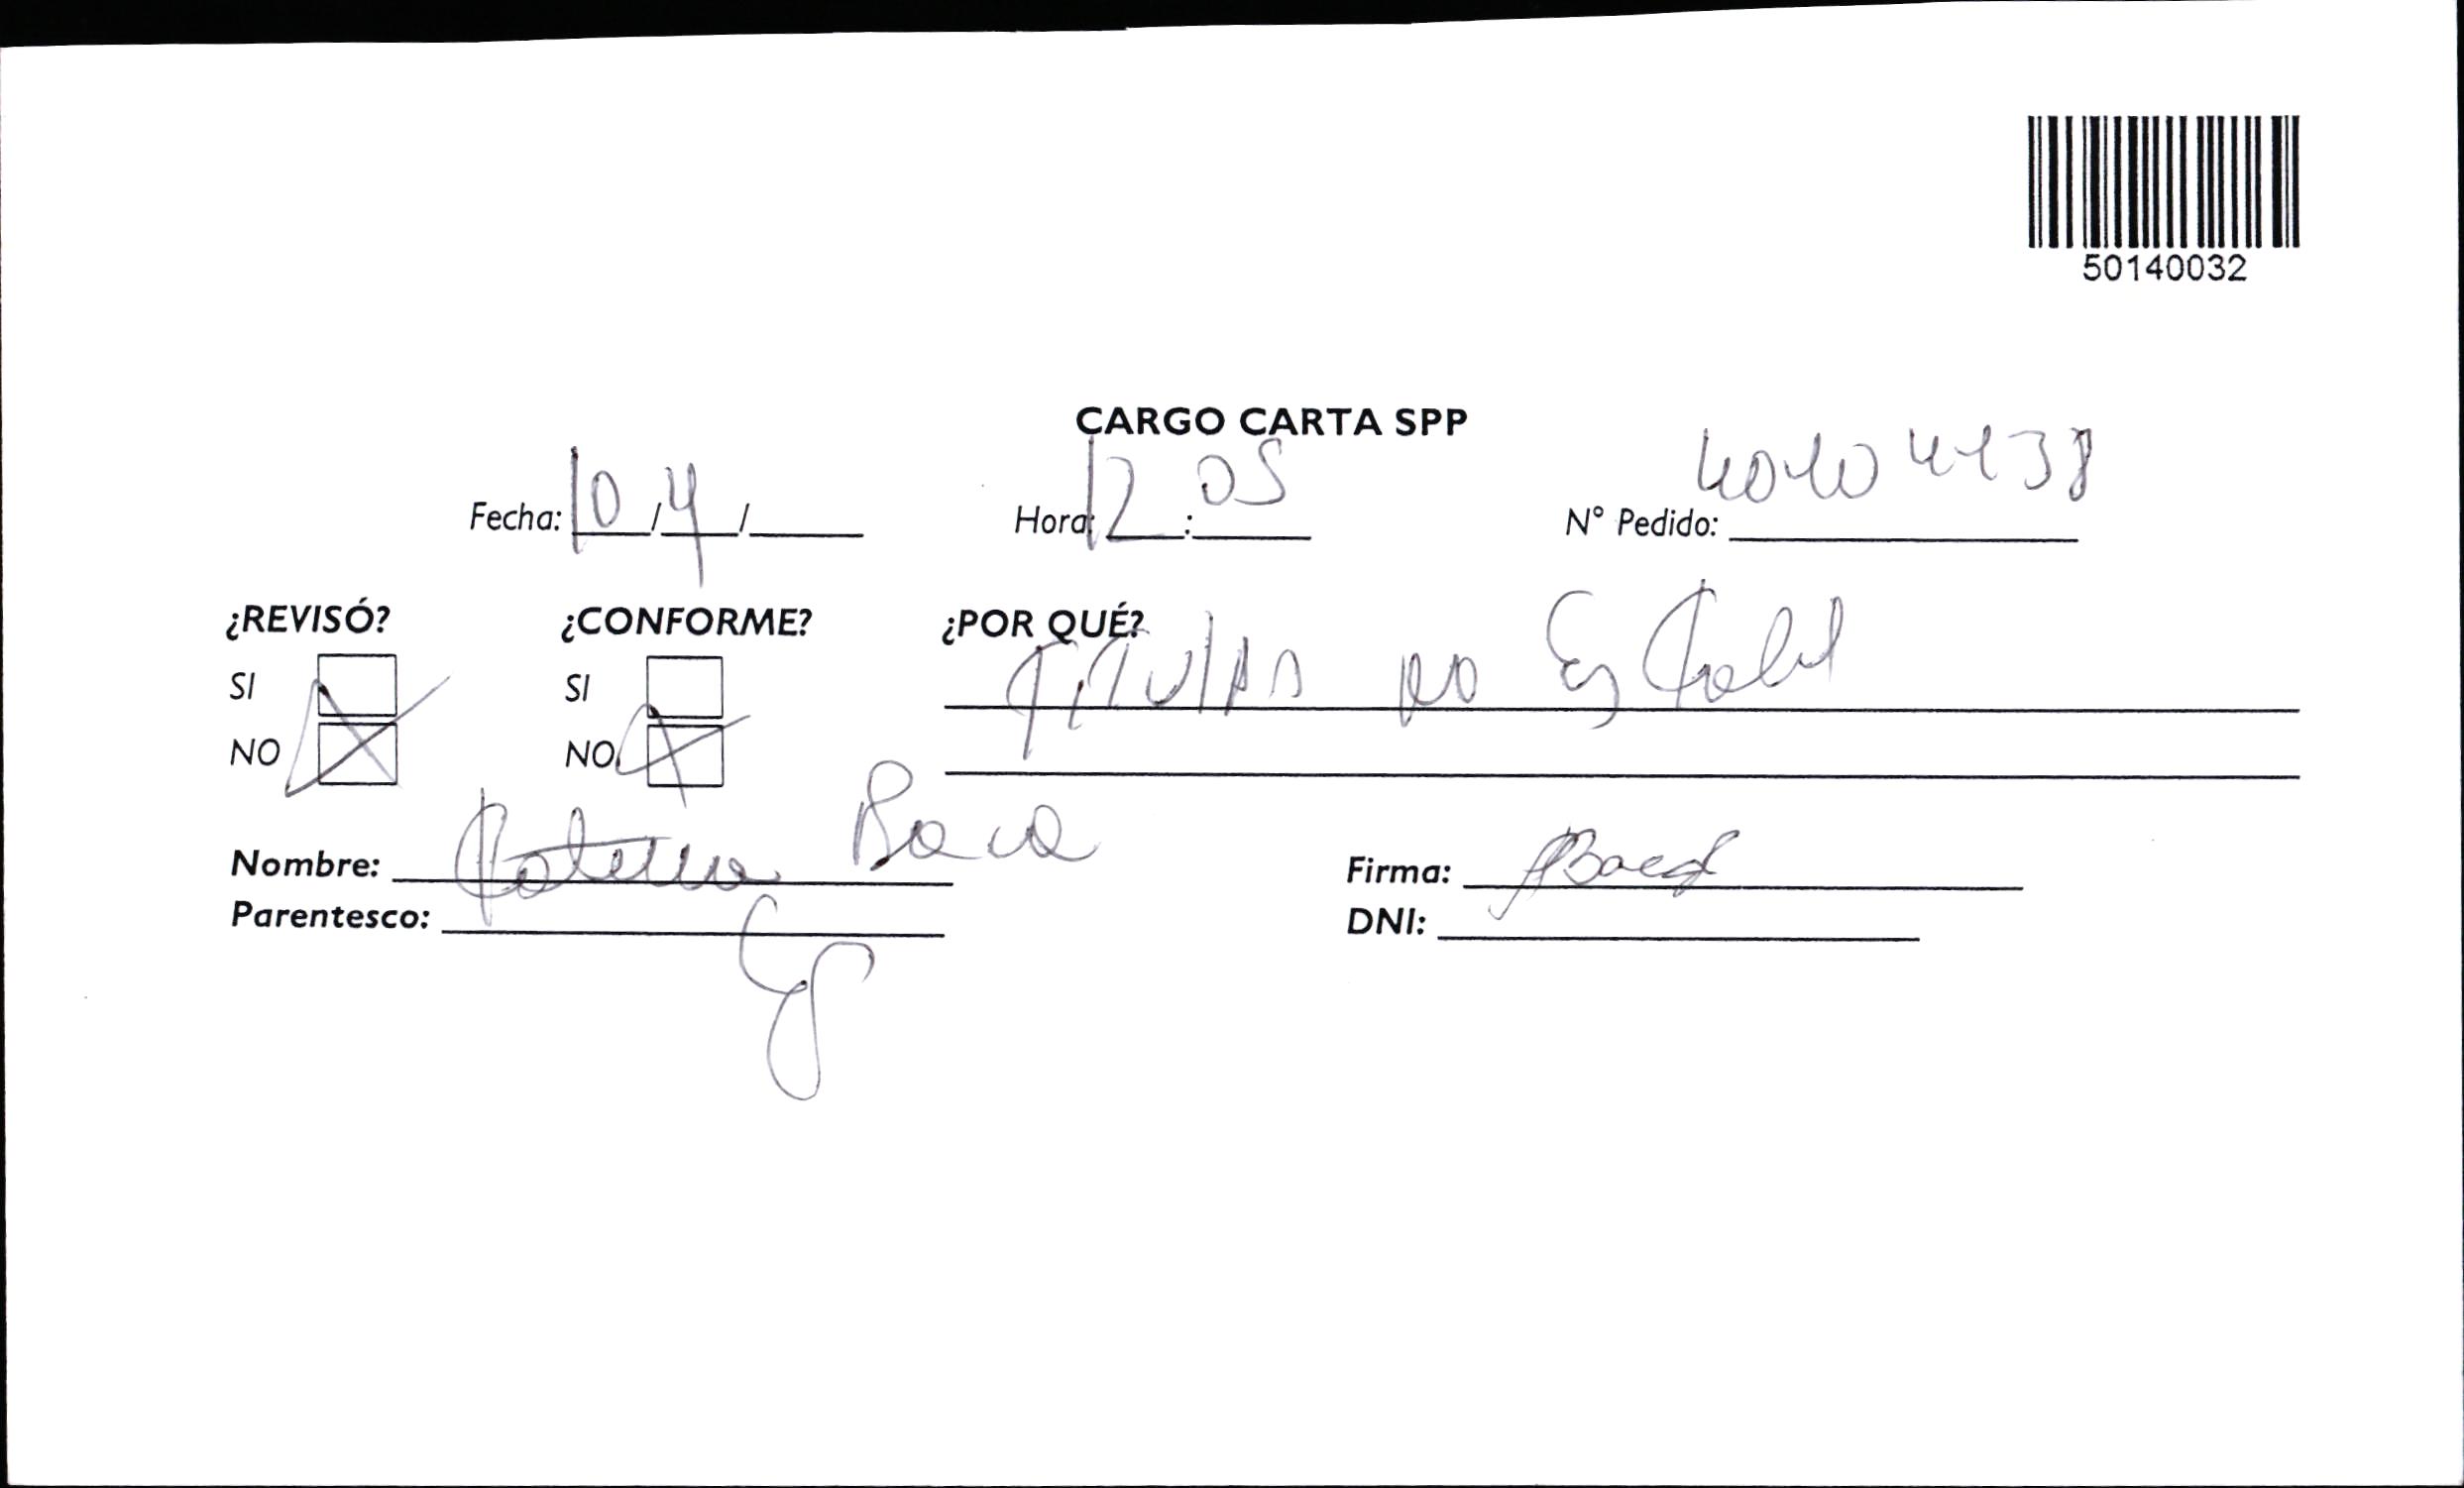 50140032
CARGO CARTA SPP
Fecha: 10/4/ Hora: 12:05 N° Pedido:
¿REVISÓ? ¿CONFORME? ¿POR QUÉ?
SI SI Titular no
NO NO
Nombre: Baca Firma: Baca
Parentesco: DNI: